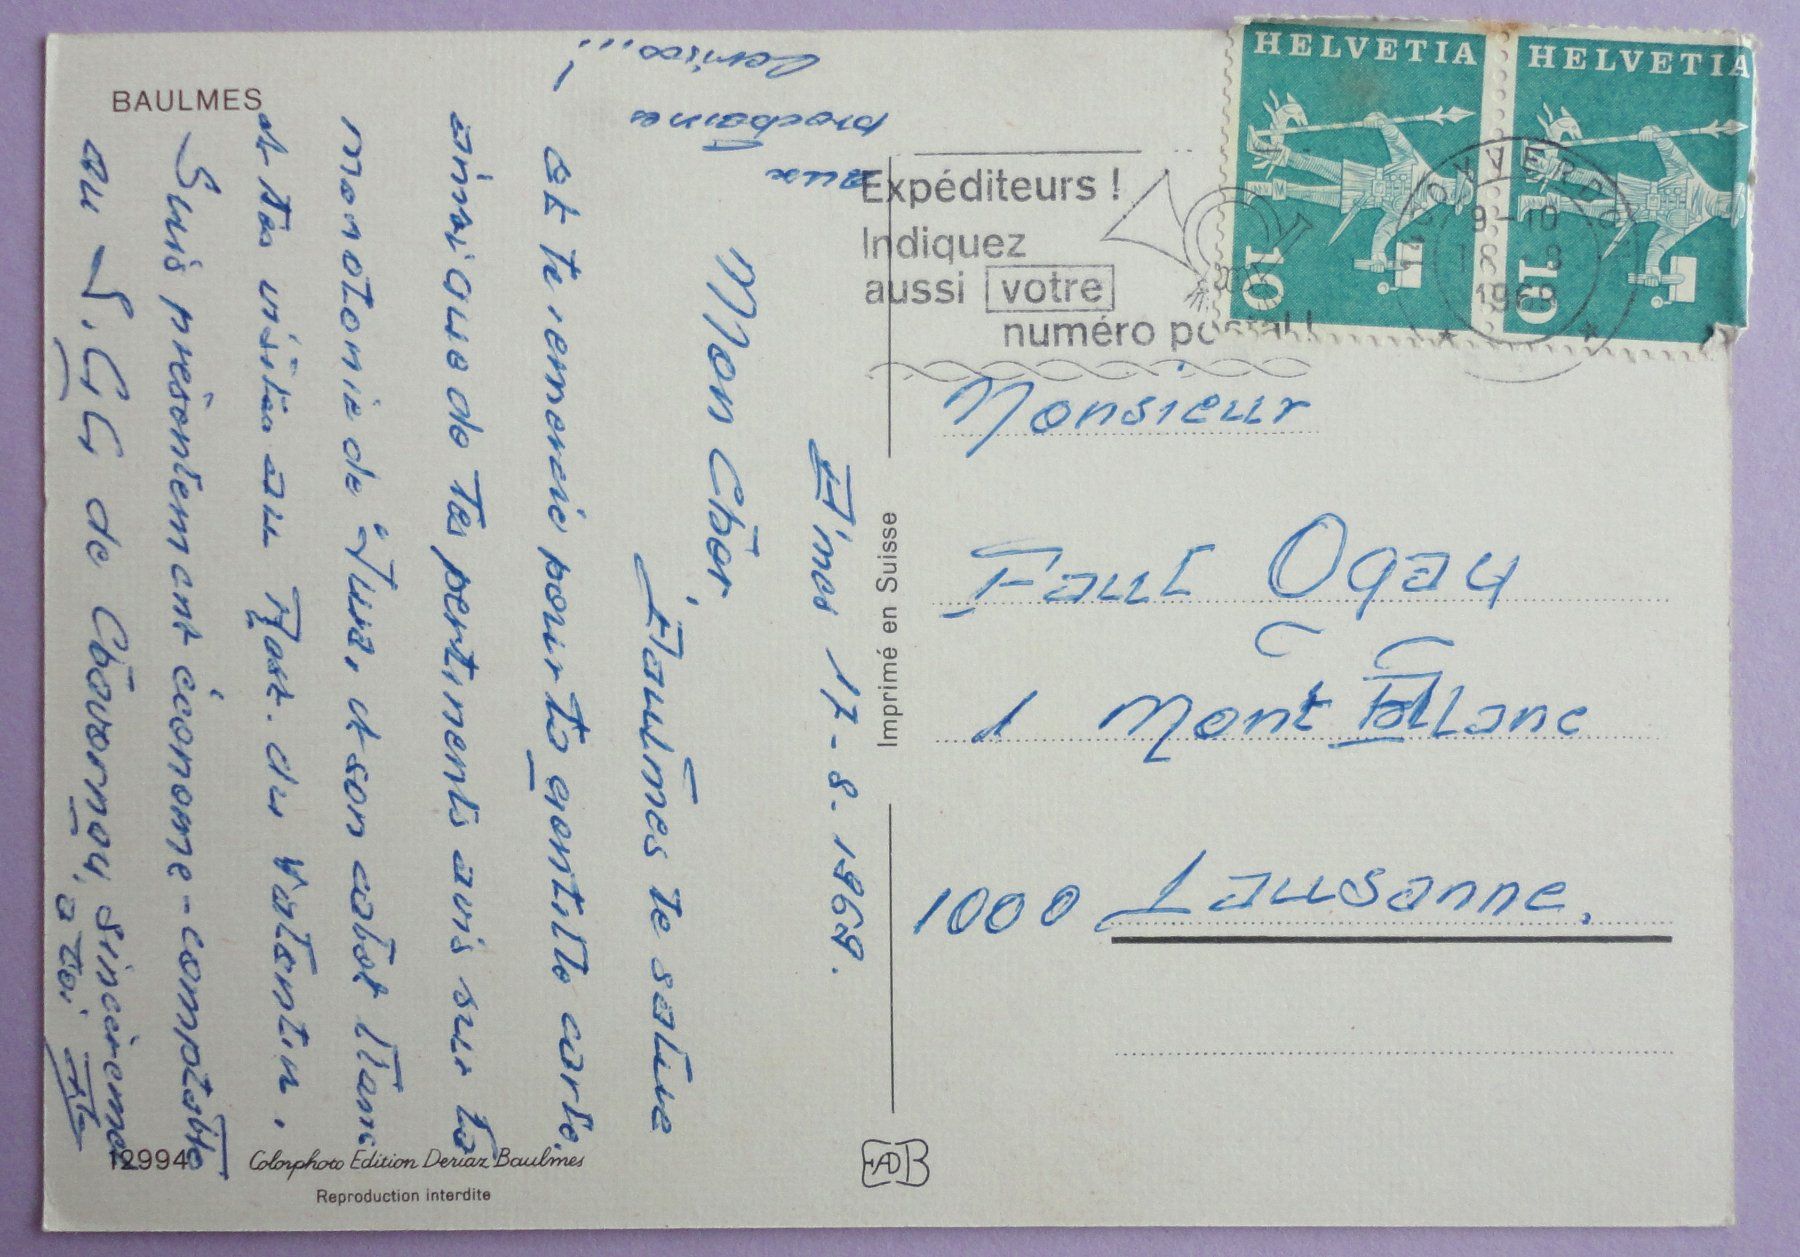 BAULMES
12994
Colorphoto Edition Deriaz Baulmes
Reproduction interdite
Imprimé en Suisse
17-8.1969.
Mon Cher
Baulmes te salue
et te remercie pour ta gentille carte,
ainsi que de tes pertinents avis sur la
monotonie de "Jura, et son cabot
et tes visites au Rest. du Valentin.
Suis présentement économe-comptable
au de Chavornay,
à toi
aux
prochaines
Cerises...!
Expéditeurs !
Indiquez
aussi votre
numéro postal !
HELVETIA
10
HELVETIA
10
YVERDON
9-10
18 8
1969
Monsieur
Paul Ogay
1 Mont Blanc
1000 Lausanne.